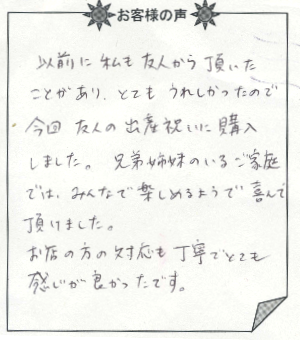 お客様の声
以前に私も友人から頂いた
ことがあり、とても うれしかったので
今回 友人の出産祝いに購入
しました。 兄弟姉妹のいるご家庭
では、みんなで楽しめるようで 喜んで
頂けました。
お店の方の対応も丁寧でとても
感じが良かったです。